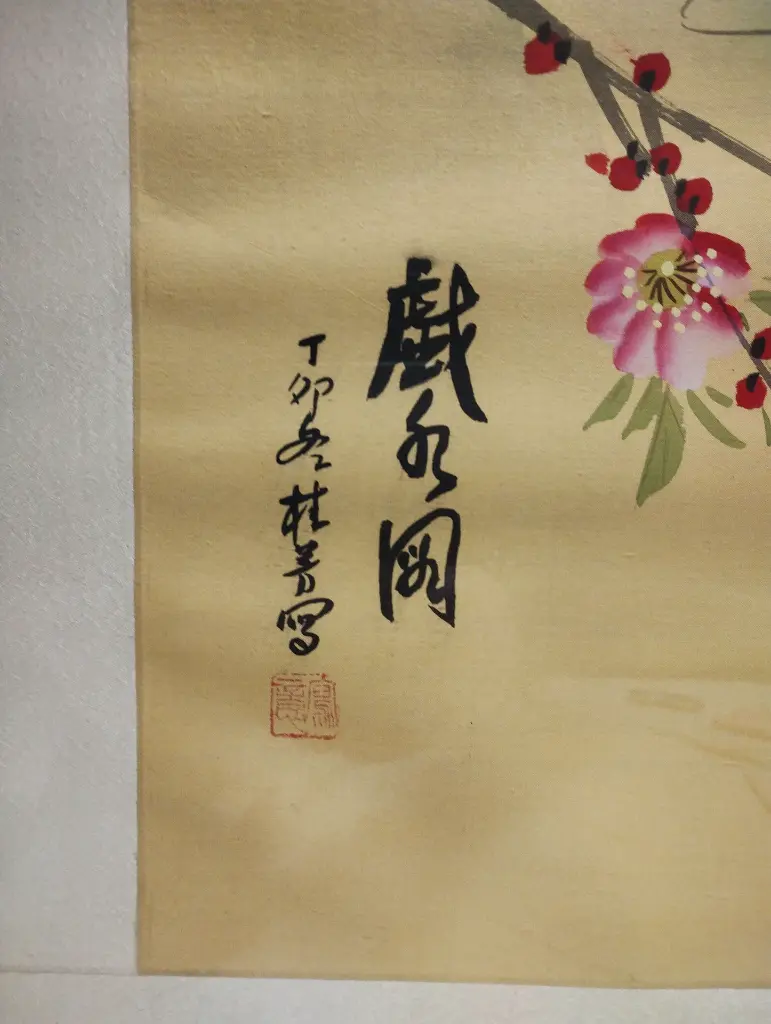 戲水圖
丁卯冬桂芳寫